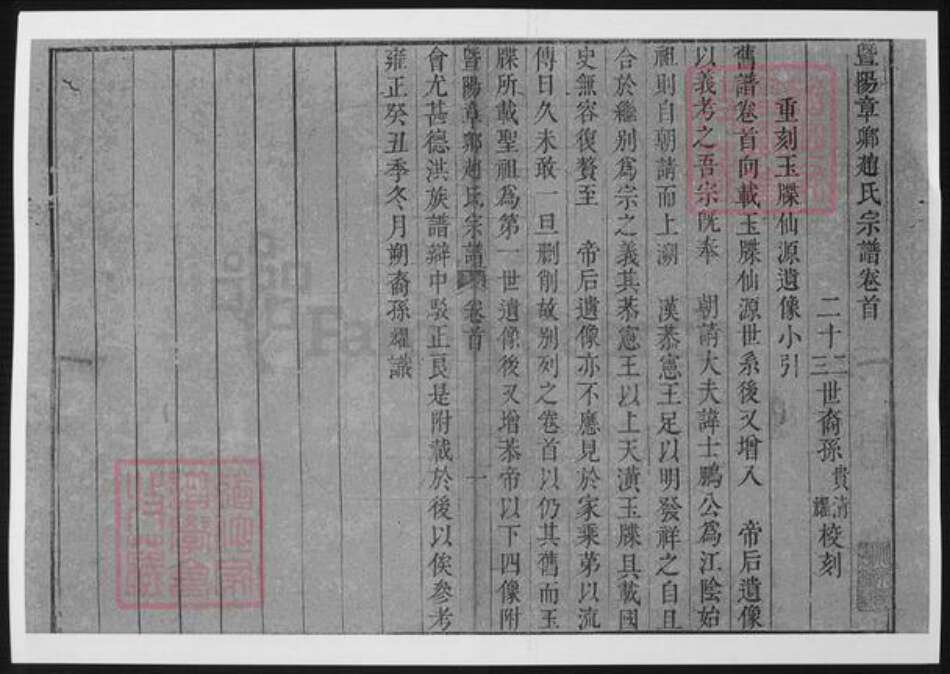 暨陽章卿趙氏宗譜卷首
二十二三世裔孫貴清耀校刻
重刻玉牒仙源遺像小引
舊譜卷首向載玉牒仙源世系後又增入 帝后遺像
以義考之吾宗旣奉 朝請大夫諱士鵬公爲江陰始
祖則自朝請而上溯 漢恭憲王足以明發祥之自且
合於繼别爲宗之義其恭憲王以上天潢玉牒具載國
史無容復贅至 帝后遺像亦不應見於家乘第以流
傳日久未敢一旦刪削故别列之卷首以仍其舊而玉
牒所載聖祖爲第一世遺像後又增恭帝以下四像附
暨陽章卿趙氏宗譜 卷首 一
會尤甚德洪族譜辯中駁正良是附載於後以俟參考
雍正癸丑季冬月朔裔孫耀識